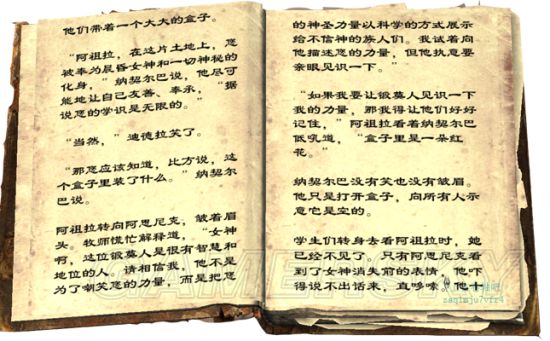 他们带着一个大大的盒子。
“阿祖拉，在这片土地上，您
被奉为晨昏女神和一切神秘的
化身，”纳契尔巴说，他尽可
能地让自己友善、奉承，“据
说您的学识是无限的。”
“当然，”迪德拉笑了。
“那您应该知道，比方说，这
个盒子里装了什么。”纳契尔
巴说。
阿祖拉转向阿思尼克，皱着眉
头。牧师慌忙解释道，“女神
啊，这位锻莫人是很有智慧和
地位的人。请相信我，他不是
为了嘲笑您的力量，而是把您
的神圣力量以科学的方式展示
给不信神的族人们。我试着向
他描述您的力量，但他执意要
亲眼见识一下。”
“如果我要让锻莫人见识一下
我的力量，那我得让他们好好
记住，”阿祖拉看着纳契巴
低吼道，“盒子里是一朵红
花。”
纳契尔巴没有笑也没有皱眉。
他只是打开盒子，向所有人示
意它是空的。
学生们转身去看阿祖拉时，她
已经不见了。只有阿思尼克看
到了女神消失前的表情，他吓
得说不出话来，直哆嗦。他十
GAMERSKY
zaq1mju7vfr4